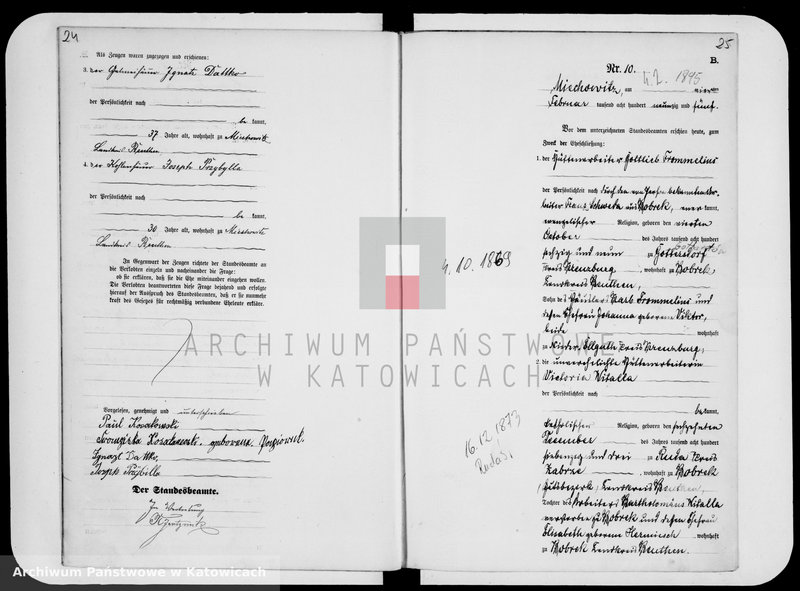 24
Als Zeugen waren zugezogen und erschienen:
3. der Grubenhäuer Ignatz Dattko
der Persönlichkeit nach
be kannt,
37 Jahre alt, wohnhaft zu Miechowitz
Landkreis Beuthen
4. der Kohlenhäuer Joseph Przybylla
der Persönlichkeit nach
be kannt,
30 Jahre alt, wohnhaft zu Miechowitz
Landkreis Beuthen
In Gegenwart der Zeugen richtete der Standesbeamte an
die Verlobten einzeln und nacheinander die Frage:
ob sie erklären, daß sie die Ehe miteinander eingehen wollen.
Die Verlobten beantworteten diese Frage bejahend und erfolgte
hierauf der Ausspruch des Standesbeamten, daß er sie nunmehr
kraft des Gesetzes für rechtmäßig verbundene Eheleute erkläre.
Vorgelesen, genehmigt und unterschrieben
Paul Kosakowski
Kosakowski geborene
Ignatz Dattko,
Der Standesbeamte.
In Vertretung
25
B.
Nr. 10.
4.2. 1895
Miechowitz, am vierten
Februar tausend acht hundert neunzig und fünf.
Vor dem unterzeichneten Standesbeamten erschien heute, zum
Zweck der Eheschließung:
1. der Hüttenarbeiter Gottlieb Trommelius
der Persönlichkeit nach durch den von Person bekannten
Franz aus Bobrek, aner kannt,
evangelischer Religion, geboren den vierten
October des Jahres tausend acht hundert
sechzig und neun zu Gottersdorf
Kreis Kreuzburg, wohnhaft zu Bobrek
Landkreis Beuthen,
Sohn des Häuslers Karl Trommelius und
dessen Ehefrau Johanna geborene Viktor,
beide wohnhaft
zu Nieder Ellguth Kreis Kreuzburg;
2. die unverehelichte Hüttenarbeiterin
Victoria Witalla
der Persönlichkeit nach
be kannt,
katholischer Religion, geboren den sechzehnten
Dezember des Jahres tausend acht hundert
siebenzig und drei zu Ruda Kreis
Zabrze, wohnhaft zu Bobrek
Gutsbezirk, Landkreis Beuthen,
Tochter des Arbeiters Bartholomäus Witalla
verstorben zu Bobrek und dessen Ehefrau
Elisabeth geborene wohnhaft
zu Bobrek Landkreis Beuthen.
4. 10. 1869
16.12.1873
Ruda Śl.
ARCHIWUM PAŃSTWOWE
W KATOWICACH
Archiwum Państwowe w Katowicach